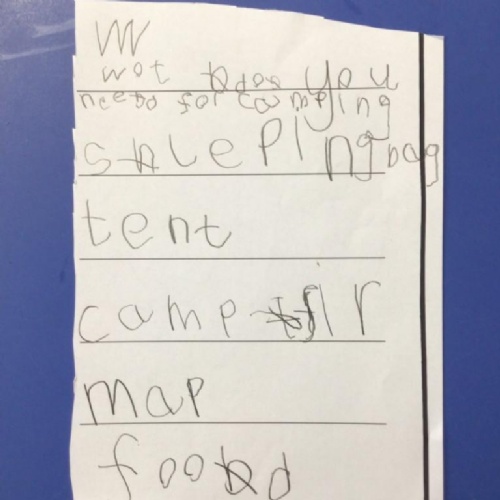 W
wot does you
need for camping
slepingbag
tent
camp fir
map
food